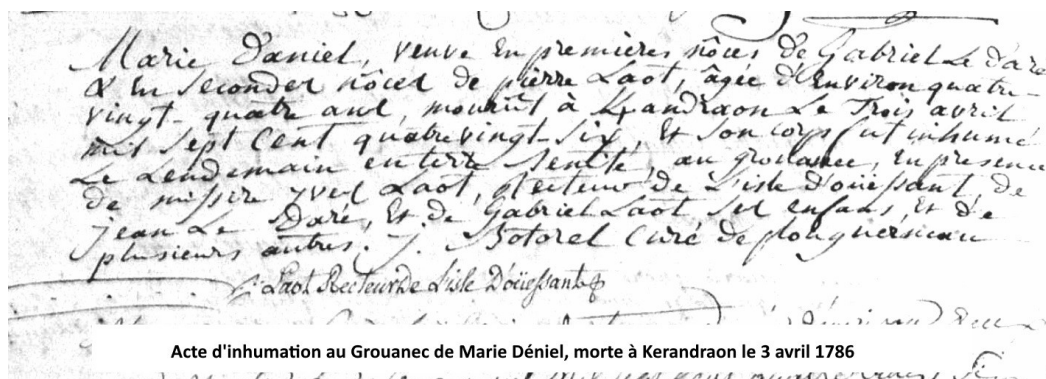 Marie Daniel, veuve en premieres nôces de Gabriel Le Daré
& en secondes nôces de pierre Laot, âgée d'environ quatre-
vingt-quatre ans, mourut à Kandraon Le Trois avril
mil sept cent quatrevingt-six, et son corps fut inhumé
Le Lendemain en terre Sentité, au grouanec, en presence
de missire yves Laot, Recteur de L'isle d'oüessant, de
jean Le Daré, et de Gabriel Laot ses enfans, et de
plusieurs autres. j. Botorel Curé de plouguerneau
Laot Recteur De L'isle D'oüessant
Acte d'inhumation au Grouanec de Marie Déniel, morte à Kerandraon le 3 avril 1786